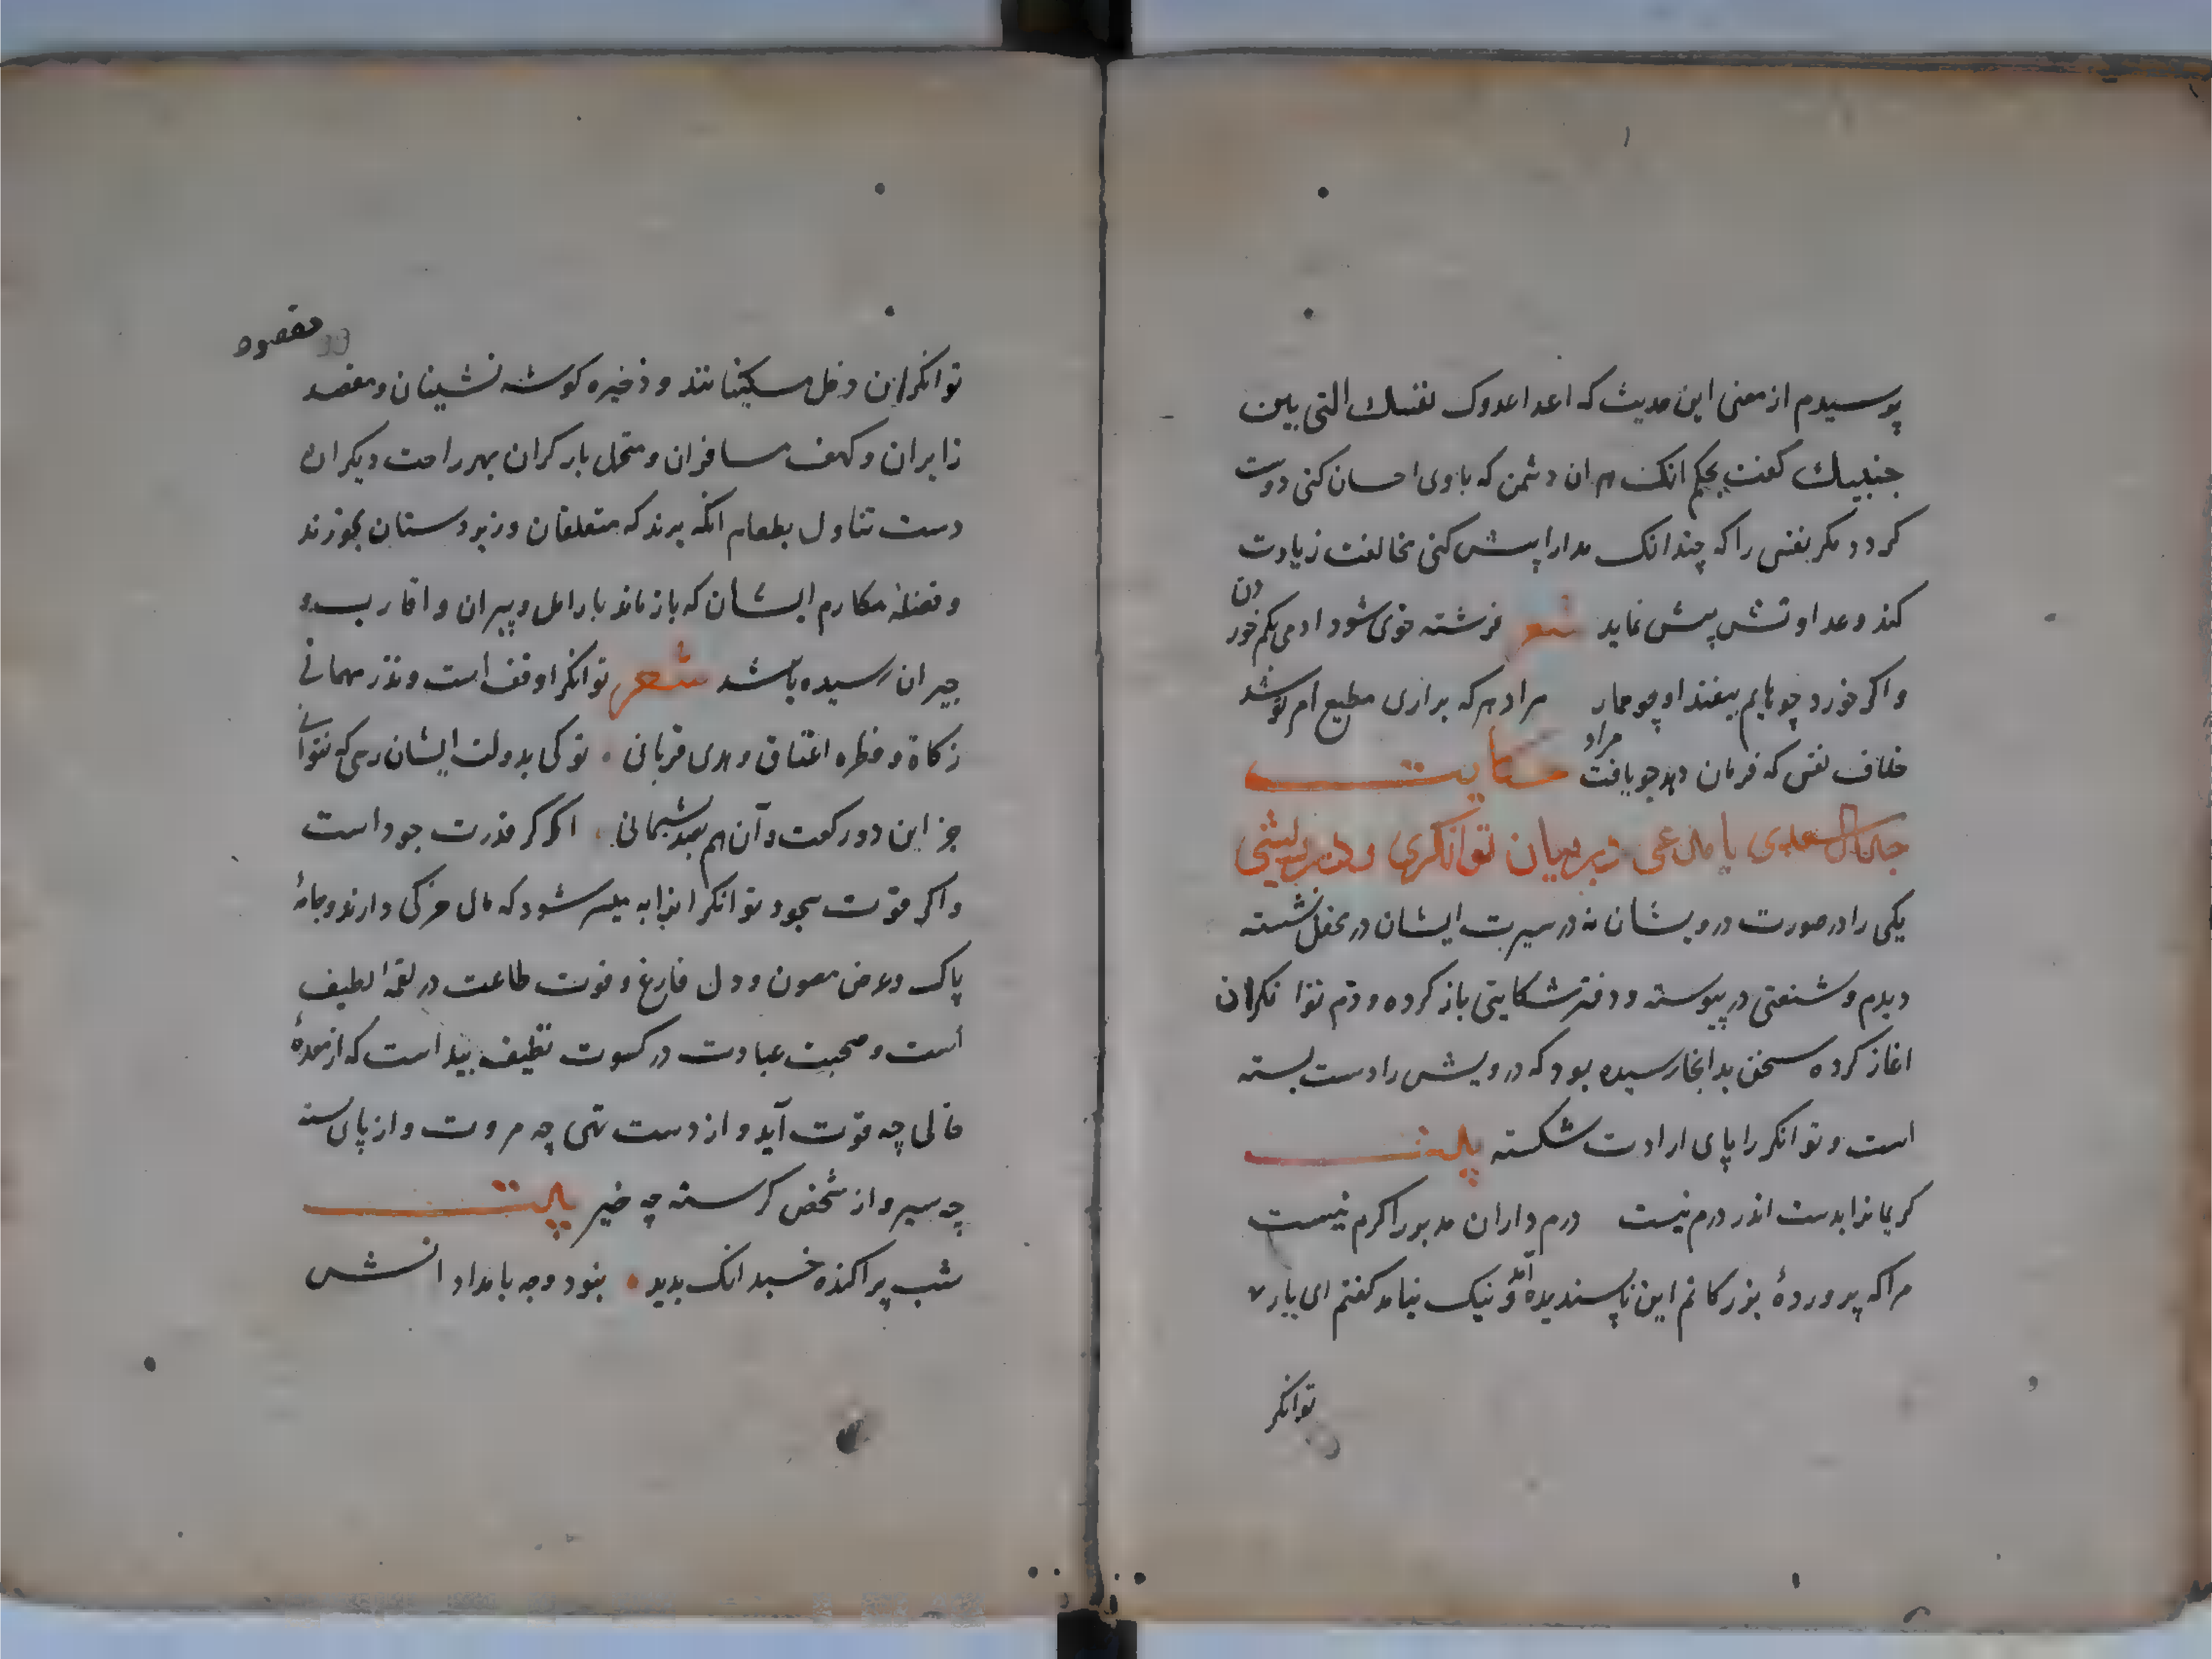 پوسیدم از معنی این حدیث که اعدا عدوک نفسك التی بین
جنبیك کفت بحکم انک هر ان دشمن که باوی احسان کنی دوست
کردد مکر نفس را که چندانک مدارا پیش کنی مخالفت زیادت
کند و عداوتش پیش نماید شعر فرشته خوی شود ادمی بکم خوردن
واکر خورد چو بهایم بیفتد او چو جمار مراد هرکه براری مطیع امر تو شد
خلاف نفس که فرمان دهد چو یافت مراد حکایت
جدال سعدی با مدعی در بیان توانکری و درویشی
یکی را در صورت درویشان نه در سیرت ایشان در محفل نشسته
دیدم و شنعتی در پیوسته و دفتر شکایتی باز کرده و ذم توانکران
اغاز کرده سخن بدانجا رسیده بود که درویش را دست بسته
است و توانکر را پای ارادت شکسته بیت
کریمانرا بدست اندر درم نیست درم داران مدبر را کرم نیست
مرا که پروردۀ بزرکانم این ناپسندیده آمد و نیک نیامد کفتم ای یار
توانکر
مقصود
توانکران دخل مسکینانند و ذخیره کوشه نشینان و مقصد
زایران و کهف مسافران و متحمل بار کران بهر راحت دیکران
دست تناول بطعام انکه برند که متعلقان و زیردستان بخورند
و فضلۀ مکارم ایشان که باز ماند بارامل و پیران و اقارب و
جیران رسیده باشد شعر توانکرا وقف است و نذر مهمانی
زکاة و فطره اعتاق و هدی قربانی تو کی بدولت ایشان رسی که نتوانی
جز این دو رکعت و آن هم بصد پشیمانی اکر کر قدرت جود است
و اکر قوت سجود توانکرانرا به میسر شود که مال مزکی دارند و جامۀ
پاک و عرض مصون و دل فارغ و قوت طاعت در لقمۀ لطیف
است و صحبت عبادت در کسوت نظیف بیداست که از معدۀ
خالی چه قوت آید و از دست تهی چه مروت و از پای بسته
چه سیر و از شخص کرسنه چه خیر بیت
شب پراکنده خسبد انک بدید نبود وجه بامداد انش